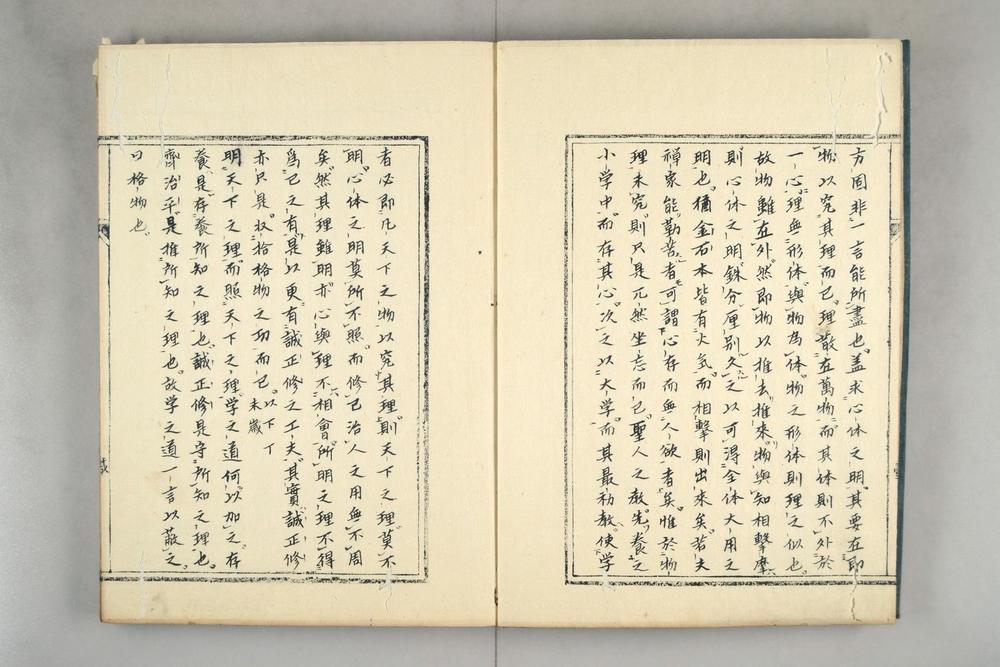 方固非一言能所盡也。盖求心体之明。其要在即
物。以究其理而已。理散在萬物。而其体則不外於
一心。理無形体。與物為体。物之形体則理之似也。
故物雖在外。然即物以推去推來。物與知相撃摩。
則心体之明。銖分厘別。久之以可得全体大用之
明也。猶金石本皆有火气。而相擊則出來矣。若夫
禅家能勤苦者。可謂心存而無人欲者矣。惟於物
理未究。則只是兀然坐忘而已。聖人之教。先養之
小学中。而存其心。次之以大学。而其最初教。使学
者必即凡天下之物以究其理。則天下之理。莫不
明。心体之明莫所不照。而修己治人之用無不周
矣。然其理雖明。亦心與理不相會。所明之理不得
為己之有。是以更有誠正修之工夫。其實誠正修
亦只是收拾格物之功而已。以下丁未歲
明天下之理。而照天下之理。学之道何以加之。存
養。是存養所知之理也。誠正修是守所知之理也。
齊治平。是推所知之理也。故学之道一言以蔽之。
曰格物也。